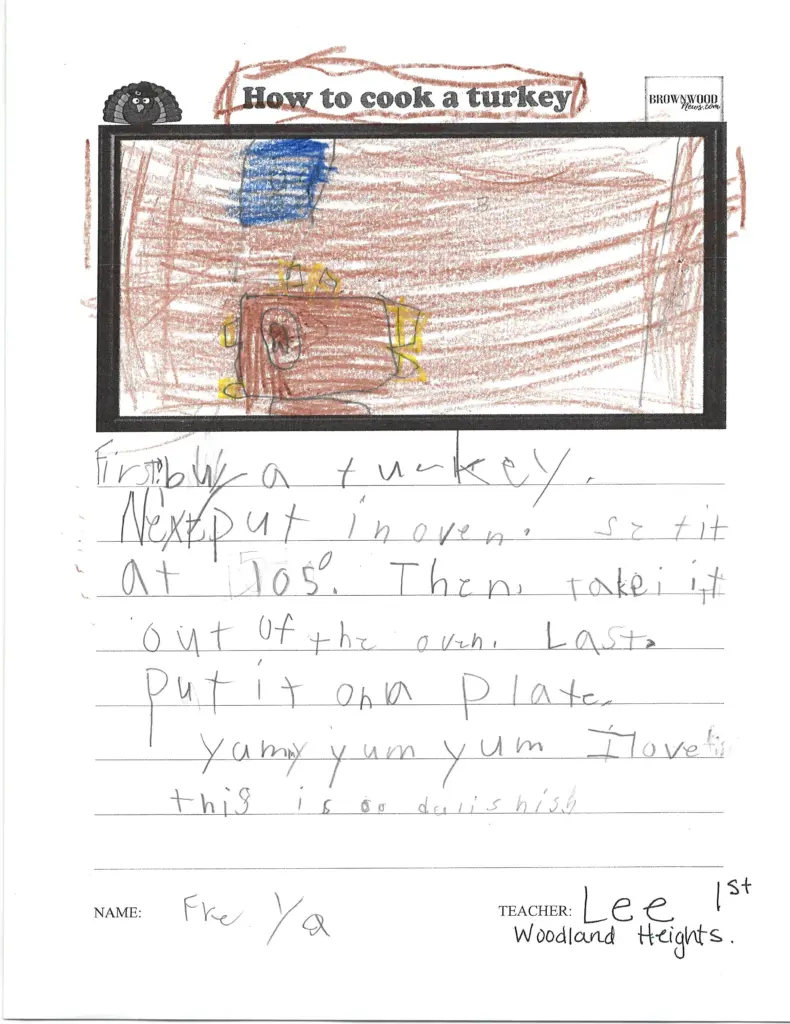 How to cook a turkey
BROWNWOOD
News.com
First, buy a turkey.
Next, put in oven. set it
at 105°. Then, take it
out of the oven. Last,
put it on a plate.
yummy yum yum I love
this is so
NAME: Freya
TEACHER: Lee 1st
Woodland Heights.